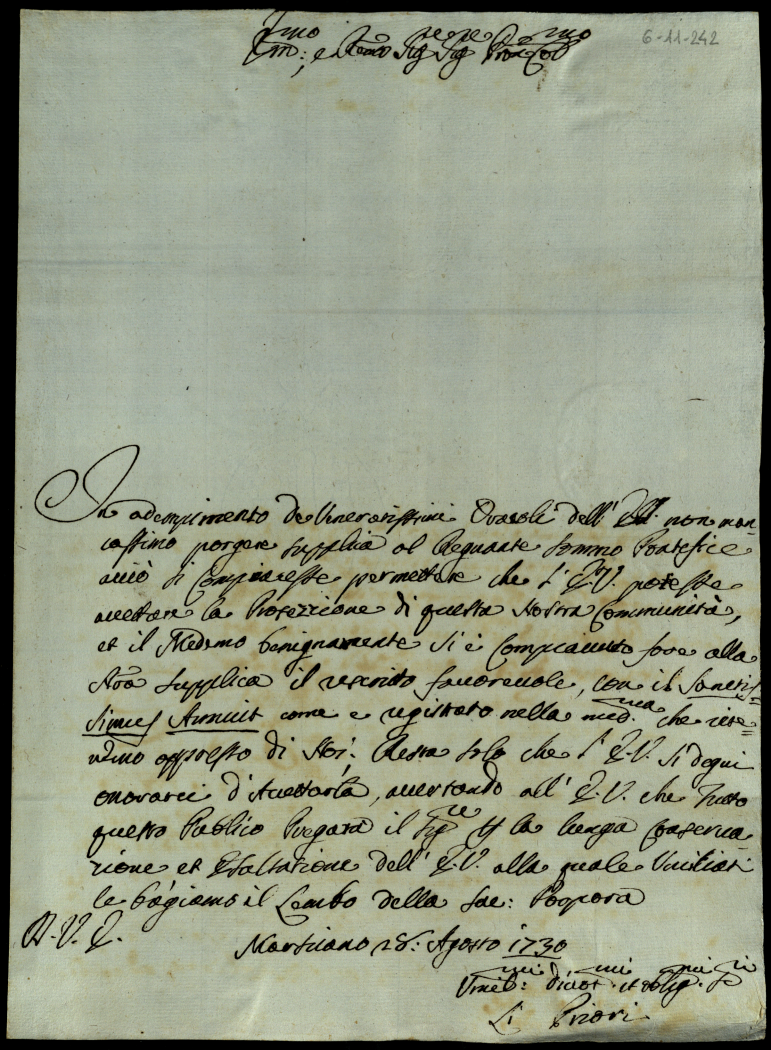 6-11-242
Em:mo e Rmo Sigre Sigre Pron Colmo
In adempimento de Veneratissimi Oracoli dell' E.V. non man=
cassimo porgere supplica al Regnante Sommo Pontefice
acciò si compiacesse permettere che l' E.V. potesse
accettare la Protezzione di questa Nostra Communità,
et il Medemo benignamente si è compiaciuto fare alla
Nrã supplica il rescritto favorevole, con il Sanctis=
simus Annuit come e registrato nella med.ma che rite=
nemo appresso di Noi; Resta solo che l' E.V. si degni
onorarci d'Accettarla, accertando all' E.V. che Tutto
questo Publico Pregarà il Sigre per la lunga Conserva=
zione et Esaltazione dell' E.V. alla quale Umiliati
le bagiamo il Lembo della Sac: Porpora
D.V.E.
Marsciano 28: Agosto 1730
Umil:mi divot:mi et oblig:mi si
Li Priori